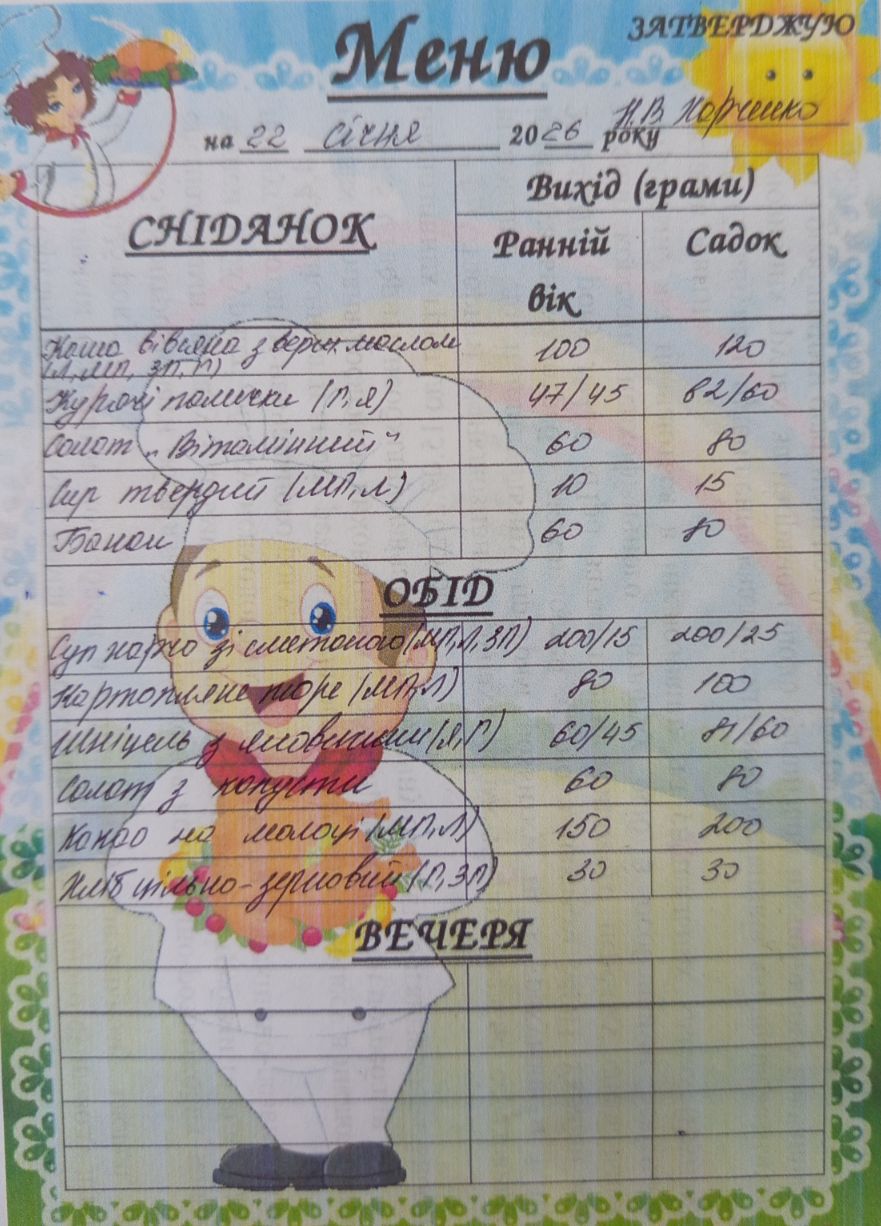 ЗАТВЕРДЖУЮ
Меню
Н.В. Харченко
на 22 січня 2026 року
СНІДАНОК
Вихід (грами)
Ранній вік
Садок
Каша вівсяна з верш. маслом 100 120
(Л, МП, ЗП, П)
Курячі палички (П, Я) 47/45 62/60
Салат „Вітамінний" 60 80
Сир твердий (МП, Л) 10 15
Банан 60 80
ОБІД
Суп харчо зі сметаною (МП, Л, ЗП) 200/15 200/25
Картопляне пюре (МП, Л) 80 100
Шніцель з яловичини (Я, Г) 60/45 81/60
Салат з капусти 60 80
Какао на молоці (МП, Л) 150 200
Хліб цільно-зерновий (Г, ЗП) 30 30
ВЕЧЕРЯ